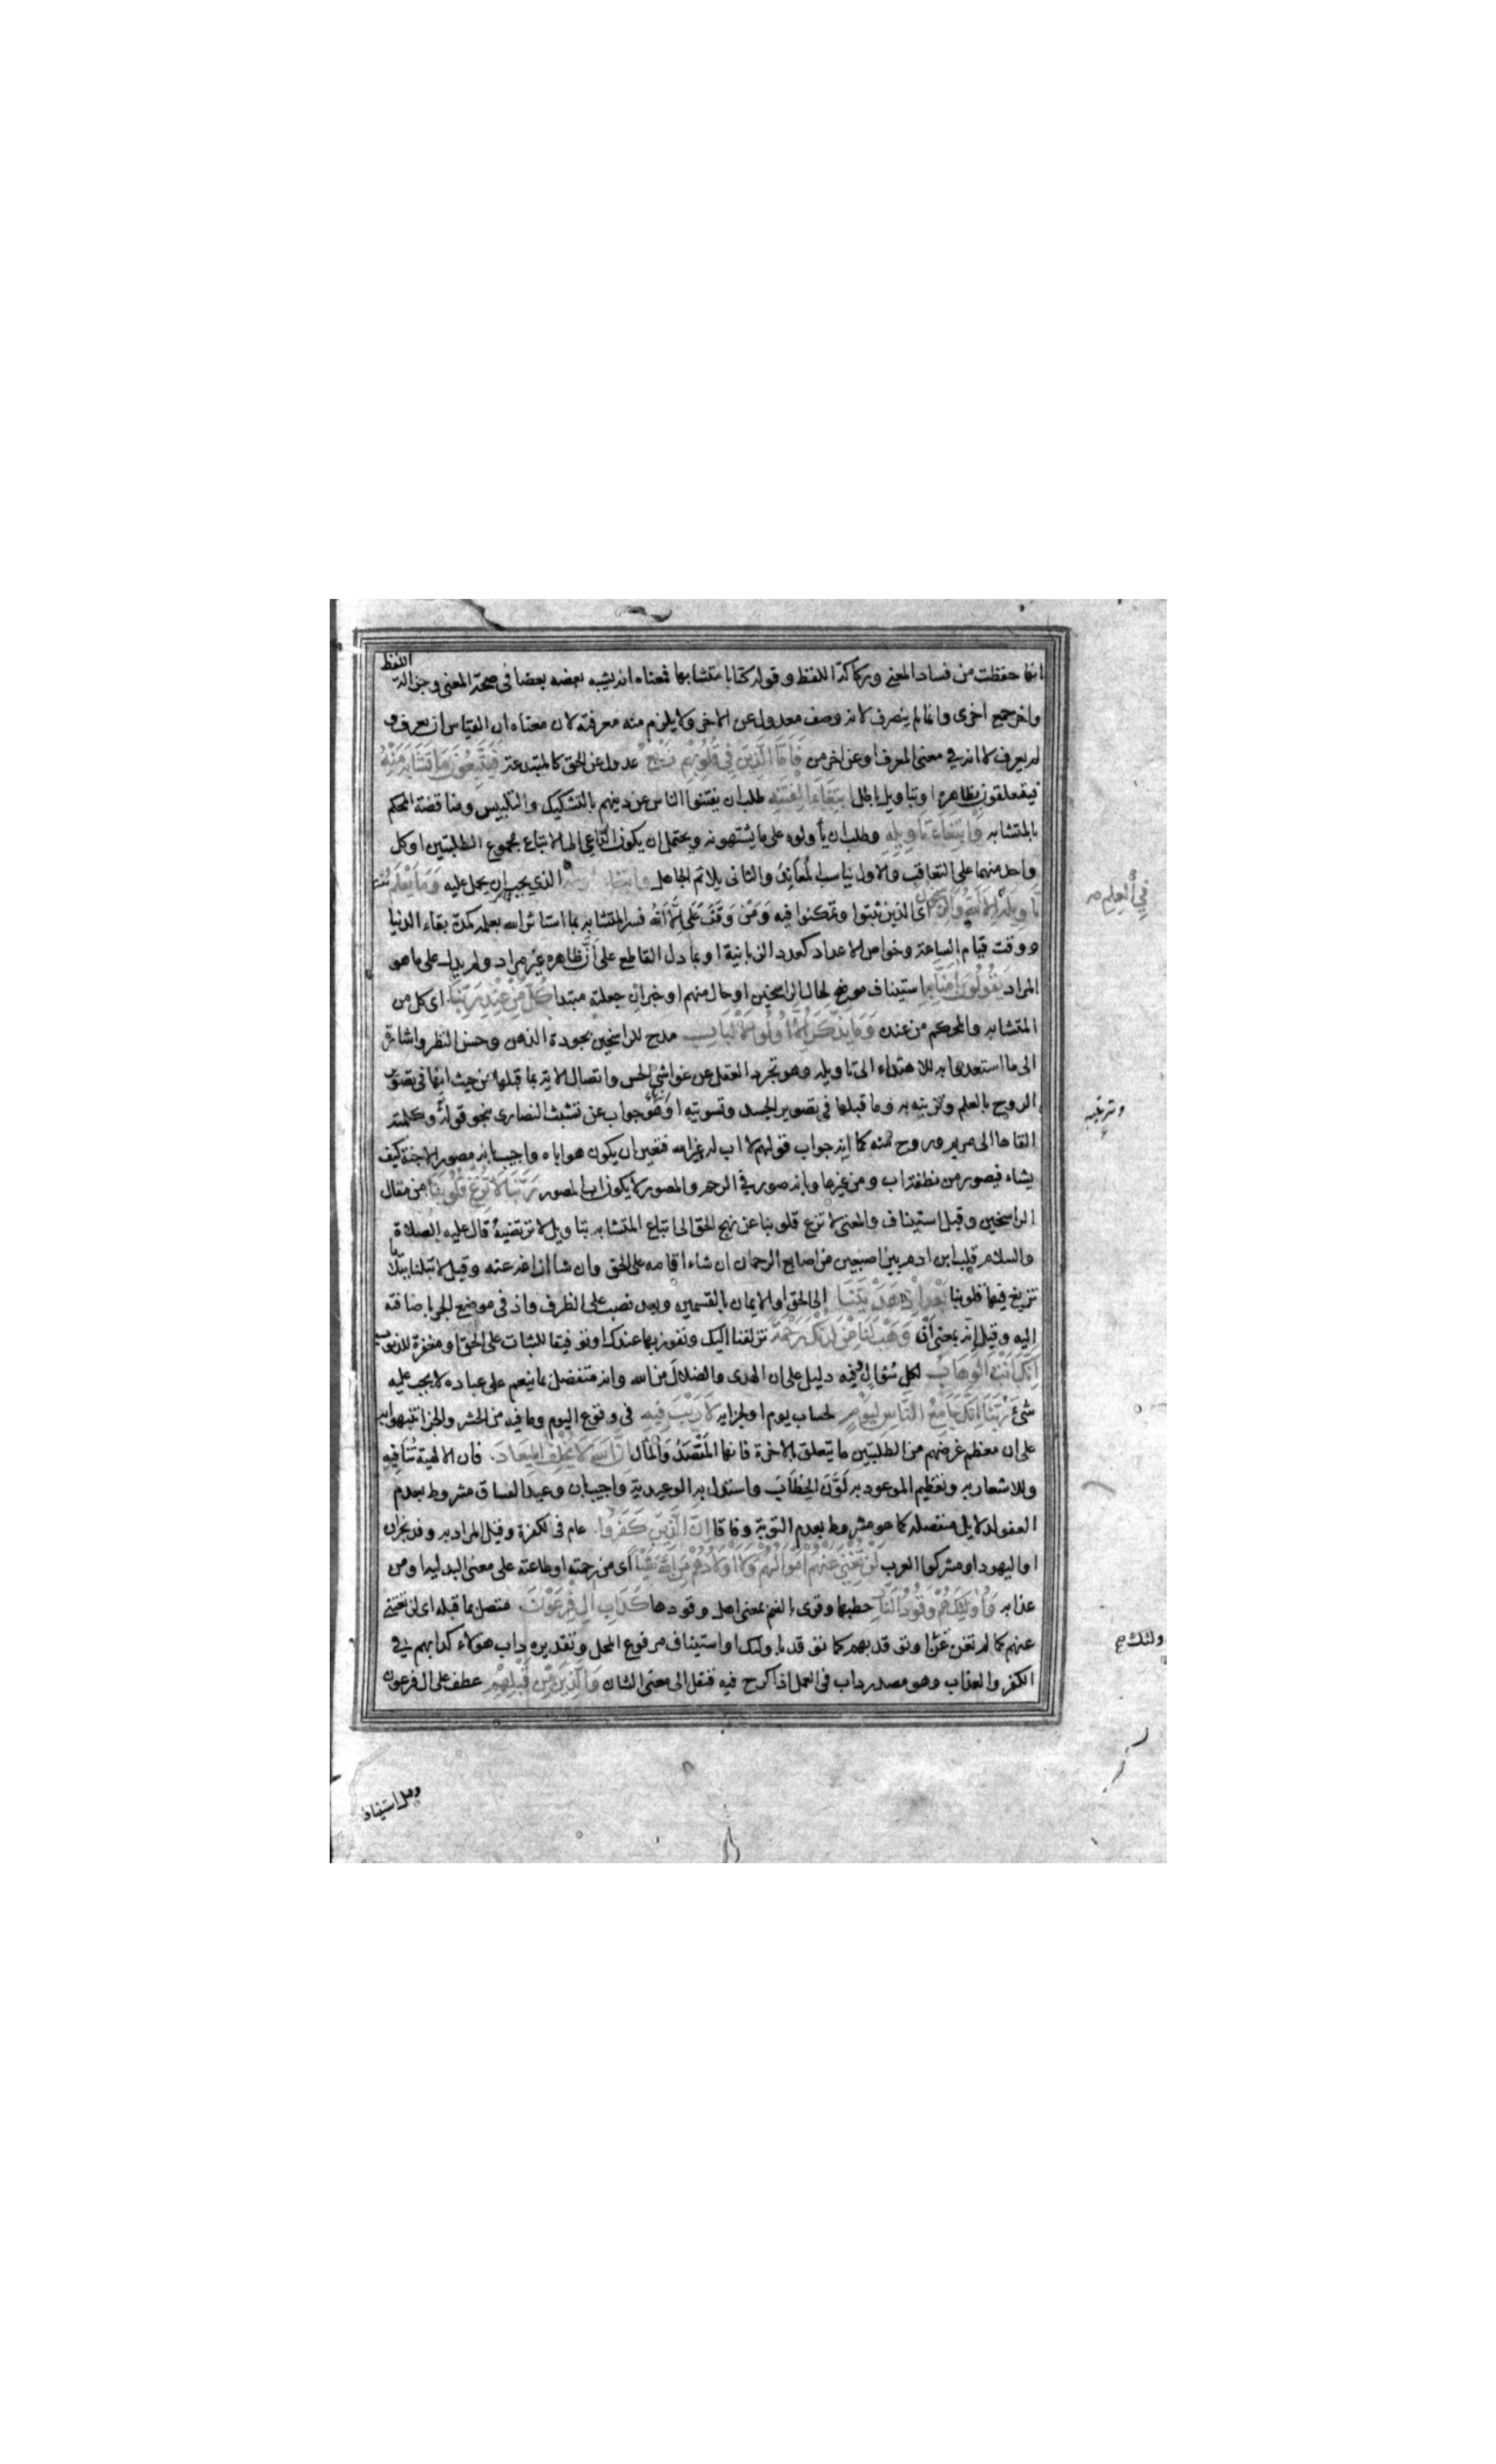 انها حفظت من فساد المعنى وركاكة اللفظ وقوله كتابا متشابها فمعناه انه يشبه بعضه بعضا في صحة المعنى وجزالة اللفظ
واخر جمع اخرى وانما لم ينصرف لانه وصف معدول عن الاخر ولا يلزم منه معرفته لان معناه ان القياس ان يعرف و
لم يعرف لا انه في معنى المعرف او عن اخر من فَاَمَّا الَّذِينَ فِي قُلُوبِهِمْ زَيْغٌ عدول عن الحق كالمبتدعة فَيَتَّبِعُونَ مَا تَشَابَهَ مِنْهُ
فيتعلقون بظاهره او بتاويل باطل ابْتِغَاءَ الْفِتْنَةِ طلب ان يفتنوا الناس عن دينهم بالتشكيك والتلبيس ومناقضة المحكم
بالمتشابه وَابْتِغَاءَ تَاْوِيلِهِ وطلب ان يأولوه على ما يشتهونه ويحتمل ان يكون الداعي الى الاتباع مجموع الطلبتين او كل
واحد منهما على التعاقب والاول يناسب المُعَانِدَ والثاني يلائم الجاهل الذي يجب ان يحمل عليه وَمَا يَعْلَمُ
تَاْوِيلَهُ اِلَّا اللّهُ وَالرَّاسِخُونَ اى الذين ثبتوا وتمكنوا فيه وَمَنْ وَقَفَ عَلَى اِلَّا اللهُ فسر المتشابه بما استاثر الله بعلمه كمدة بقاء الدنيا
في العِلم صح
ووقت قيام الساعة وخواص الاعداد كعدد الزبانية او بما دل القاطع على اَنَّ ظاهره غير مراد ولم يدل على ما هو
المراد يَقُولُونَ اٰمَنَّا بِهِ استيناف موضح لحال الراسخين او حال منهم او خبر ان جعلته مبتدا كُلٌّ مِنْ عِنْدِ رَبِّنَا اى كل من
المتشابه والمحكم من عنده وَمَا يَذَّكَّرُ اِلَّا اُولُوا الْاَلْبَابِ مدح للراسخين بجودة الذهن وحسن النظر واشارة
الى ما استعدوا به للاهتداء الى تاويله وهو تجرد العقل عن غواشي الحس واتصال الاية بما قبلها من حيث انها في تصوير
الروح بالعلم وتزيينه به وما قبلها في تصوير الجسد وتسويته او انها جواب عن تشبث النصارى بنحو قوله وكلمته
وتربيته
القاها الى مريم وروح منه كما انه جواب قولهم لا اب له غير الله فتعين ان يكون هو اباه واجيب بانه مصور الاجنة كيف
يشاء فيصور من نطفة اب ومن غيرها وبانه صوره في الرحم والمصور لا يكون اب المصور رَبَّنَا لَا تُزِغْ قُلُوبَنَا من مقال
الراسخين وقيل استيناف والمعنى لا تزغ قلوبنا عن نهج الحق الى اتباع المتشابه بتاويل لا ترتضيه قال عليه الصلاة
والسلام قلب ابن ادم بين اصبعين من اصابع الرحمان ان شاء اقامه على الحق وان شاء ازاغه عنه وقيل لا تبلنا ببلايا
تزيغ فيها قلوبنا بَعْدَ اِذْ هَدَيْتَنَا الى الحق او الايمان بالقسمين وبعد نصب على الظرف واذ في موضع الجر باضافته
اليه وقيل انه بمعنى اَنْ وَهَبْ لَنَا مِنْ لَدُنْكَ رَحْمَةً تزلفنا اليك ونفوز بها عندك او توفيقا للثبات على الحق او مغفرة للذنوب
اِنَّكَ اَنْتَ الْوَهَّابُ لكل سُؤالٍ وفيه دليل على ان الهدى والضلال من الله وانه متفضل بما ينعم على عباده لا يجب عليه
شئ رَبَّنَا اِنَّكَ جَامِعُ النَّاسِ لِيَوْمٍ لحساب يوم او لجزايه لَا رَيْبَ فِيهِ في وقوع اليوم وما فيه من الحشر والجزا نبهوا به
على ان معظم غرضهم من الطلبتين ما يتعلق بالاخرة فانها المَقْصَدُ والمآل اِنَّ اللّهَ لَا يُخْلِفُ الْمِيعَادَ. فان الالهية تُنَافِيهِ
وللاشعار به وتعظيم الموعود به لَوَّنَ الخِطَابَ واستدل به الوعيدية واجيب بان وعيد الفساق مشروط بعدم
العفو لدلايل منفصله كما هو مشروط بعدم التوبة وفاقا اِنَّ الَّذِينَ كَفَرُوا. عام في الكفرة وقيل المراد به وفد نجران
او اليهود او مشركوا العرب لَنْ تُغْنِيَ عَنْهُمْ اَمْوَالُهُمْ وَلَا اَوْلَادُهُمْ مِنَ اللّهِ شَيْئًا اى من رحمته او طاعته على معنى البدلية او من
عذابه وَاُولٰئِكَ هُمْ وَقُودُ النَّارِ حطبها وقرى بالضم بمعنى اهل وقودها كَدَاْبِ اٰلِ فِرْعَوْنَ. متصل بما قبله اى لن تغنى
عنهم كما لم تغن عَنْ او توقد بهم كما توقد با ولئك او استيناف مرفوع المحل وتقديره داب هولاء كدابهم في
ولئك صح
الكفر والعذاب وهو مصدر داب في العمل اذا كدح فيه فنقل الى معنى الشان وَالَّذِينَ مِنْ قَبْلِهِمْ عطف على ال فرعون
وقيل استيناف